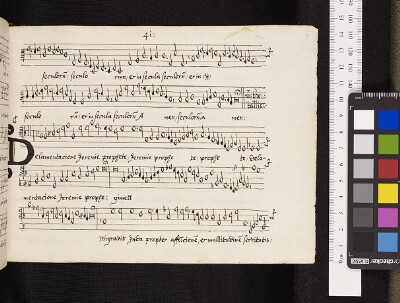 41:
seculorũ, seculo rum, et in secula seculorũ, et in
seculo rũ: et in secula seculorũ A men, seculorũ A men:
De lamentatione Jeremie prophete, Jeremie prophe te prophe te, De la
mentatione Jeremie prophete: gimell
Migravit Juda propter afflictionē, et multitudinē servitutis: